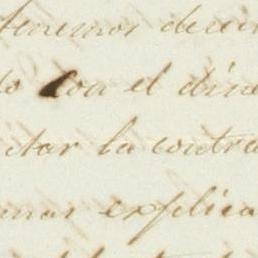 tenemos decir
do con el dine
itar la contra
mas explica